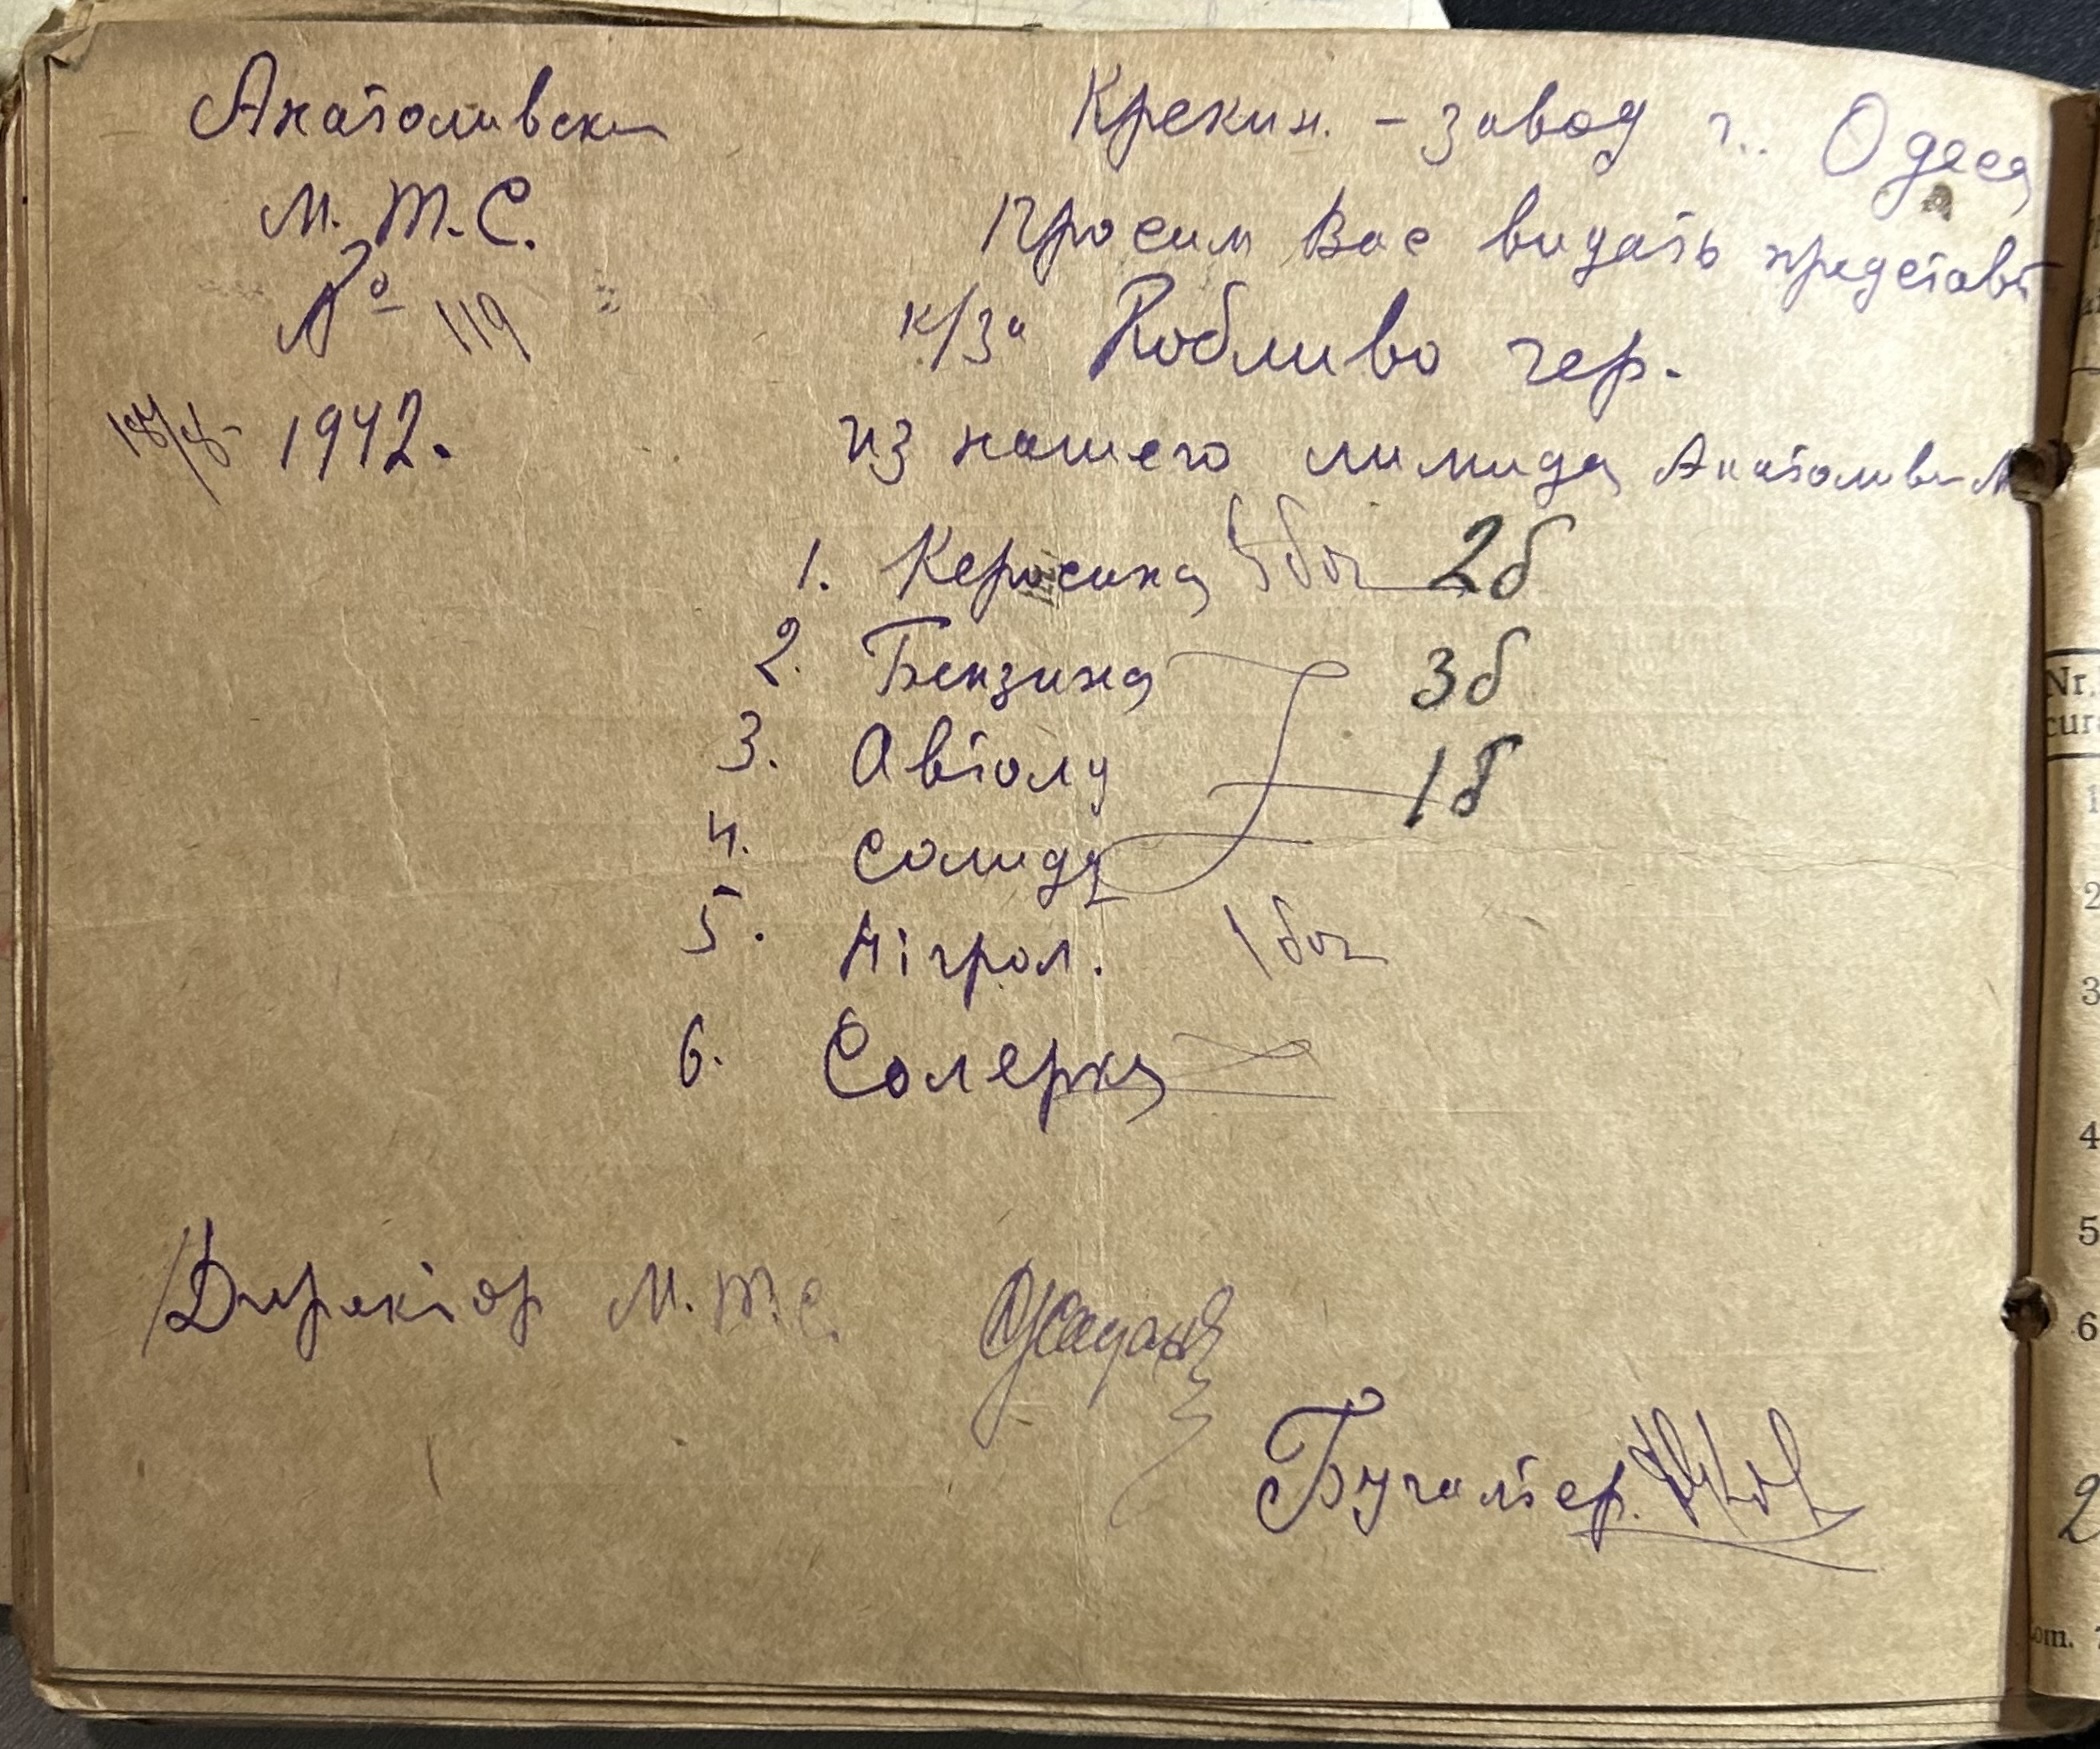 Анатоливск
М. Т. С.
№ 119
18/8- 1942.
Крекин. - завод г.. Одеса
Просим Вас видать представ
к/за Кобливо гер.
из нашего лимида Анатоливс М
1. Керосина 5 боч 2б
2. Бензина 3б
3. Автолу 1б
4. Солиду
5. Нігрол. 1 боч
6. Солерка
Директор М. Т. С.
Бугалтер.
Nr.
cur.
1
2
3
4
5
6
2
om.